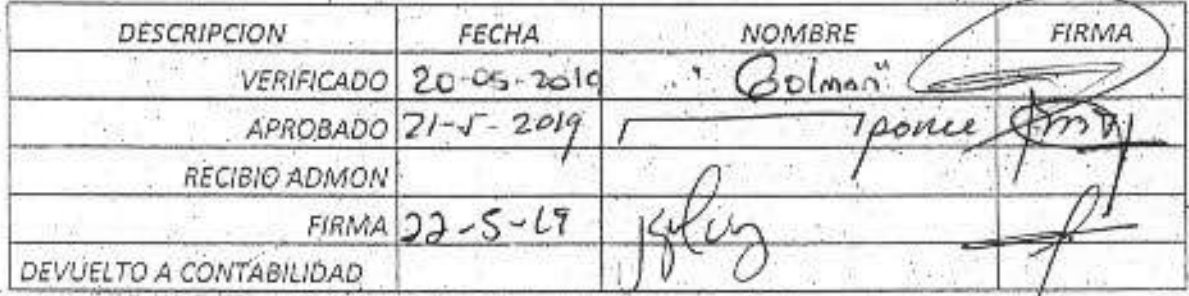 DESCRIPCION FECHA NOMBRE FIRMA
VERIFICADO 20-05-2019 "Colman"
APROBADO 21-5-2019 ponce
RECIBIO ADMON
FIRMA 22-5-19
DEVUELTO A CONTABILIDAD